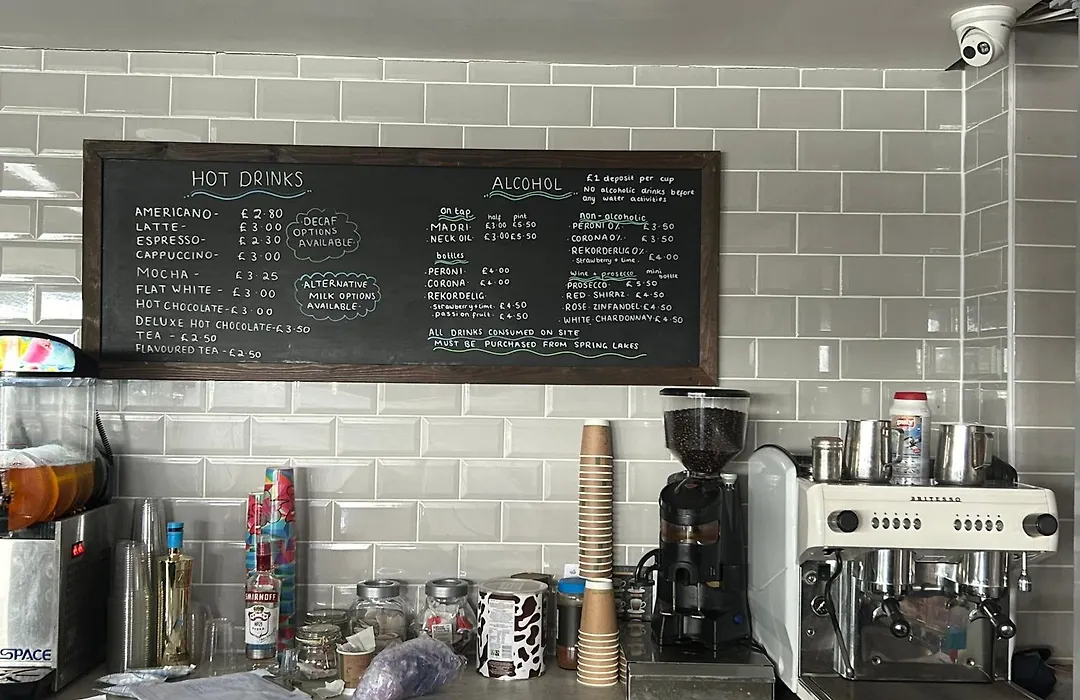 HOT DRINKS
AMERICANO- £2.80
LATTE- £3.00
ESPRESSO- £2.30
CAPPUCCINO- £3.00
MOCHA - £3.25
FLAT WHITE - £3.00
HOT CHOCOLATE-£3.00
DELUXE HOT CHOCOLATE-£3.50
TEA - £2.50
FLAVOURED TEA-£2.50
DECAF
OPTIONS
AVAILABLE
ALTERNATIVE
MILK OPTIONS
AVAILABLE
ALCOHOL
£1 deposit per cup
NO alcoholic drinks before
any water activities
on tap
half pint
MADRI- £3.00 £5.50
NECK OIL- £3.00 £5.50
bottles
PERONI- £4.00
CORONA- £4.00
REKORDELIG-
strawberry + lime- £4.50
passion fruit- £4.50
non-alcoholic
PERONI 0% £3.50
CORONA 0% £3.50
REKORDERLIG 0%
strawberry + lime £4.00
wine + prosecco mini bottle
PROSECCO- £5.50
RED-SHIRAZ- £4.50
ROSE-ZINFANDEL-£4.50
WHITE-CHARDONNAY-£4.50
ALL DRINKS CONSUMED ON SITE
MUST BE PURCHASED FROM SPRING LAKES
SPACE
SMIRNOFF
BRITESSO